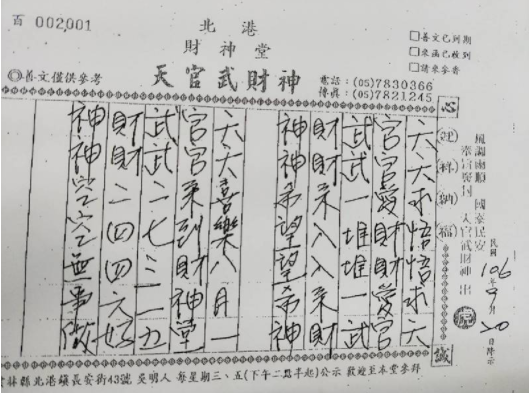 百 002,001
北港
財神堂
天官武財神
◎善文僅供參考
電話:(05)7830366
傳真:(05)7821245
□善文已到期
□來函已收到
□請來參香
風調雨順 國泰民安
天官武財神 出
民國106年9月20日降示
心
祥 納 福
誠
六六求悟悟求六
官官愛財財愛官
武武一堆堆一武
財財來入入來財
神神希望望希神
六六喜樂八月一
官官來到財神堂
武武二七三一九
財財二四四六好
神神空空無事做
林縣北港鎮長安街43號 吳明人 每星期三、五(下午二點半起)公示 歡迎至本堂參拜